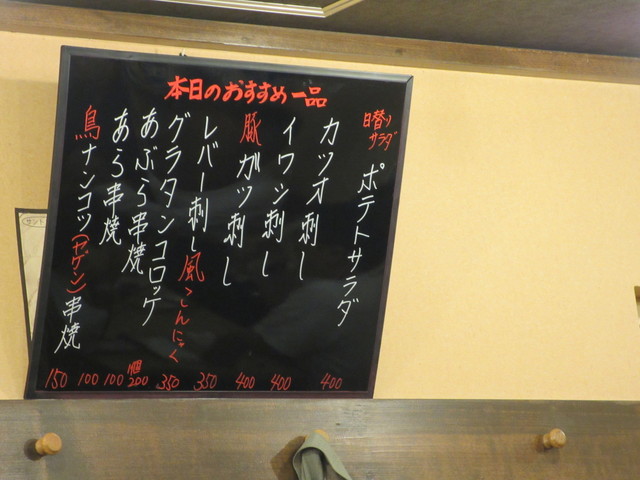 本日のおすすめ一品
日替り
サラダ
ポテトサラダ
400
カツオ刺し
400
イワシ刺し
400
豚ガツ刺し
350
レバー刺し風こんにゃく
350
グラタンコロッケ
1個
200
あぶら串焼
100
あら串焼
100
鳥ナンコツ(ヤゲン)串焼
150